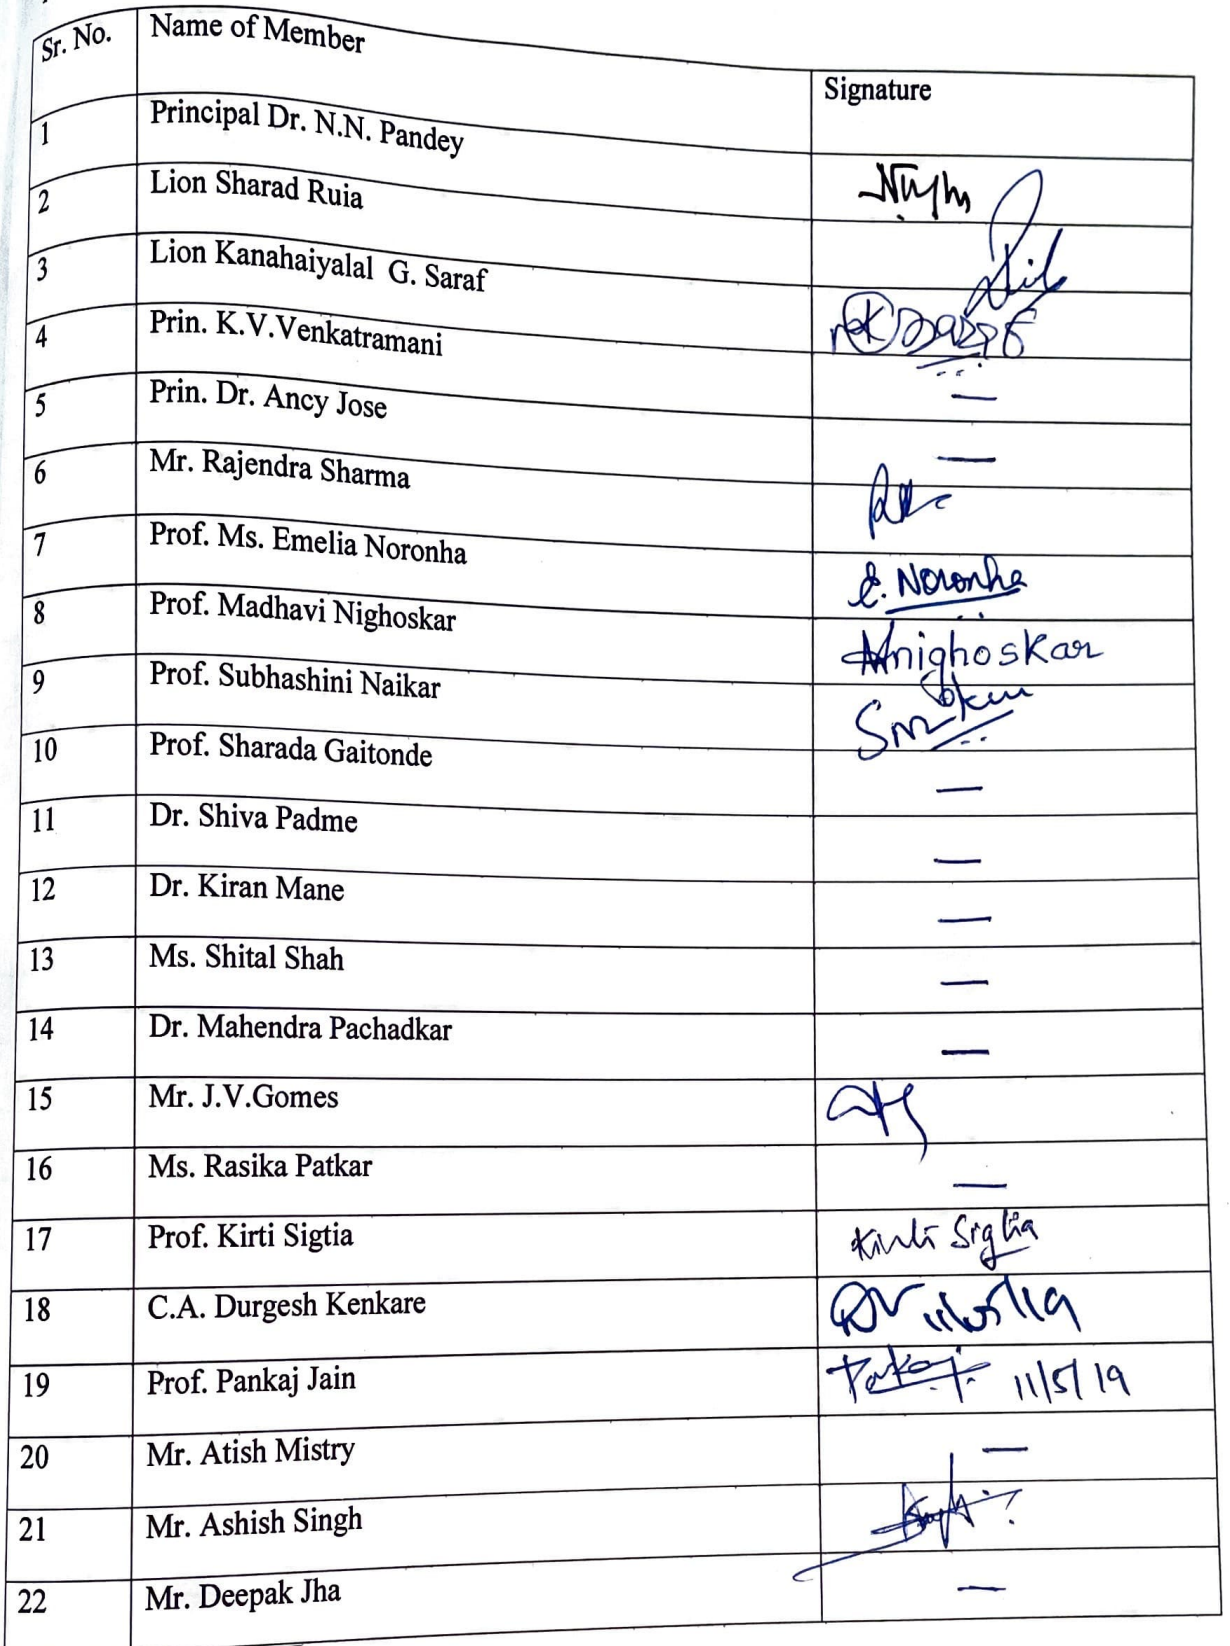 Sr. No. Name of Member Signature
1 Principal Dr. N.N. Pandey
2 Lion Sharad Ruia
3 Lion Kanahaiyalal G. Saraf
4 Prin. K.V.Venkatramani —
5 Prin. Dr. Ancy Jose —
6 Mr. Rajendra Sharma
7 Prof. Ms. Emelia Noronha E. Noronha
8 Prof. Madhavi Nighoskar Mnighoskar
9 Prof. Subhashini Naikar
10 Prof. Sharada Gaitonde —
11 Dr. Shiva Padme —
12 Dr. Kiran Mane —
13 Ms. Shital Shah —
14 Dr. Mahendra Pachadkar —
15 Mr. J.V.Gomes
16 Ms. Rasika Patkar —
17 Prof. Kirti Sigtia Kirti Sigtia
18 C.A. Durgesh Kenkare
19 Prof. Pankaj Jain Pankaj 11/5/19
20 Mr. Atish Mistry —
21 Mr. Ashish Singh
22 Mr. Deepak Jha —